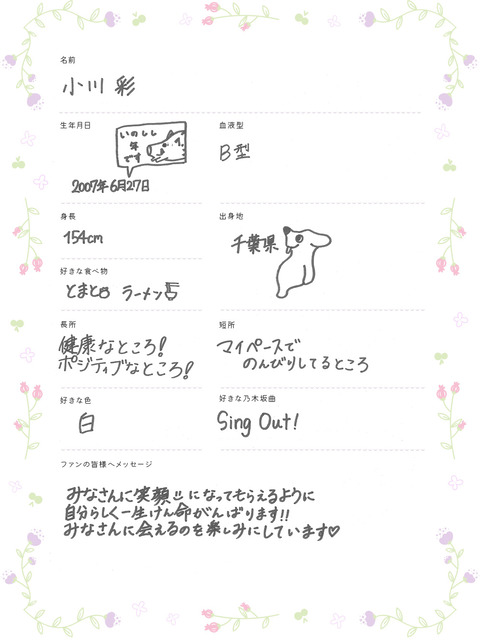 名前
小川 彩
生年月日
いのしし
年
です
2007年6月27日
血液型
B型
身長
154cm
出身地
千葉県
好きな食べ物
とまと ラーメン
長所
健康なところ!
ポジティブなところ!
短所
マイペースで
のんびりしてるところ
好きな色
白
好きな乃木坂曲
Sing Out!
ファンの皆様へメッセージ
みなさんに笑顔になってもらえるように
自分らしく一生けん命がんばります!!
みなさんに会えるのを楽しみにしています♡